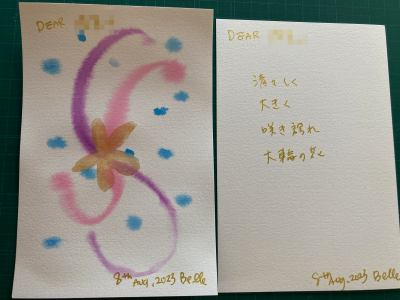 DEAR
8th Aug, 2023 Belle
DEAR
清々しく
大きく
咲き誇れ
大輪の
8th Aug, 2023 Belle